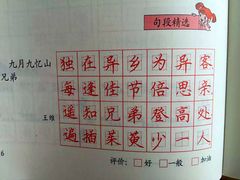 句段精选
九月九忆山
兄弟
王维
独在异乡为异客
每逢佳节倍思亲
遥知兄弟登高处
遍插茱萸少一人
6
评价：□好 □一般 □加油